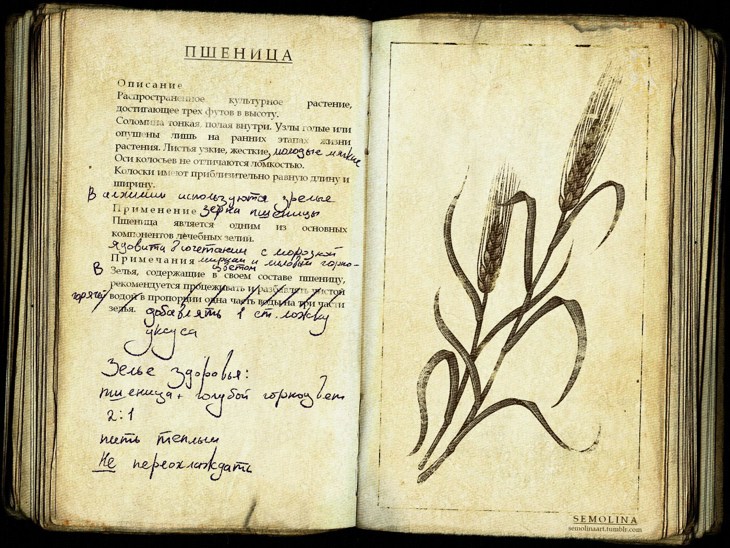 ПШЕНИЦА
Описание
Распространенное культурное растение,
достигающее трех футов в высоту.
Соломина тонкая, полая внутри. Узлы голые или
опушены лишь на ранних этапах жизни
растения. Листья узкие, жесткие, молодые мягкие
Оси колосьев не отличаются ломкостью.
Колоски имеют приблизительно равную длину и
ширину.
В алхимии используются зрелые
Применение зерна пшеницы
Пшеница является одним из основных
компонентов лечебных зелий.
Ядовита в сочетании с морозной
Примечания мирции и горно-
цветом
В Зелья, содержащие в своем составе пшеницу,
рекомендуется процеживать и разбавлять чистой
горячей водой в пропорции одна часть воды на три части
зелья. добавлять 1 ст. ложку
уксуса
Зелье здоровья:
пшеница + голубой горноцвет
2:1
пить теплым
Не переохлаждать
SEMOLINA
semolinaart.tumblr.com